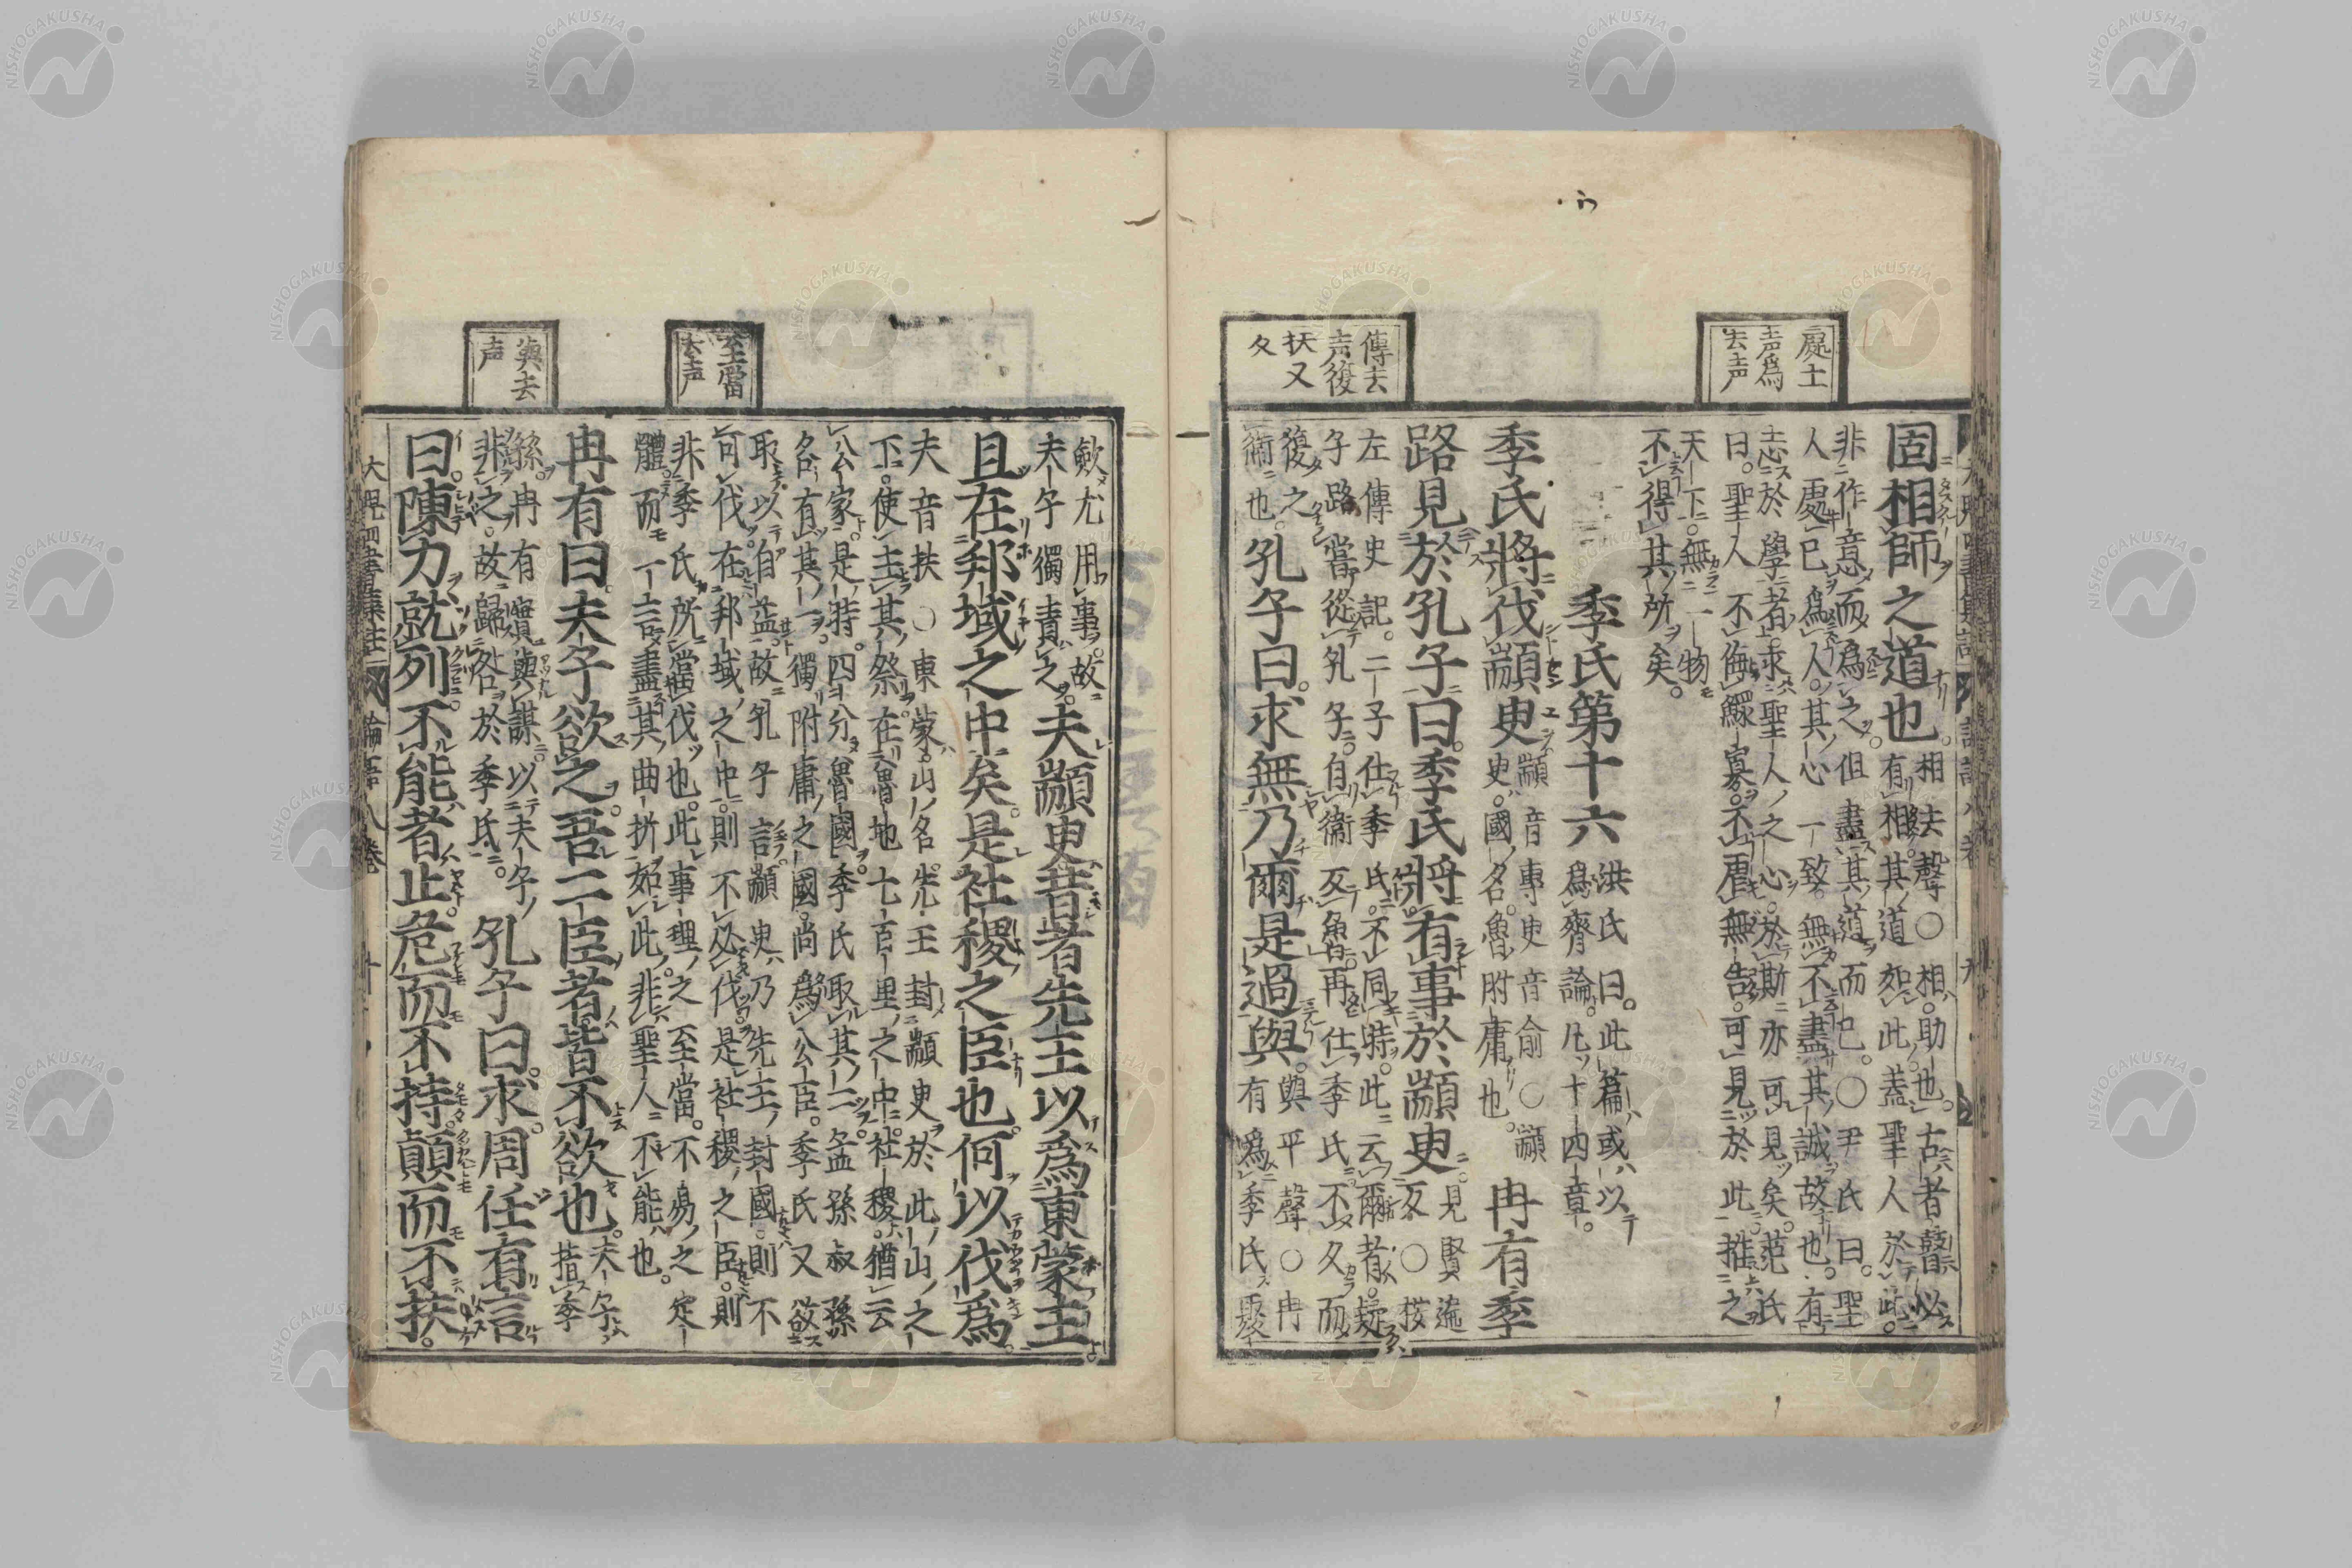 處士
声爲
去声
傳去
声復
扶又
夂
固相師之道也。相去聲○相。助也。古者瞽必
有相。其道如此。蓋聖人於此。
非作意而爲之。但盡其道而已。○尹氏曰。聖
人處已爲人。其心一致。無不盡其誠故也。有
志於學者。求聖人之心。於斯亦可見矣。范氏
曰。聖人不侮鰥寡。不虐無告。可見於此。推之
天下。無一物
不得其所矣。
季氏第十六 洪氏曰。此篇或以
爲齊論。凡十四章。
季氏將伐顓臾 顓音專臾音俞○顓
臾。國名。魯附庸也。 冉有季
路見於孔子曰。季氏將有事於顓臾。見賢遍
反○按
左傳史記。二子仕季氏。不同時。此云爾者。疑
子路嘗從孔子。自衞反魯。再仕季氏。不久而
復之
衞也。孔子曰。求無乃爾是過與。與平聲○冉
有爲季氏聚
至當
去声
與去
声
歛尤用事。故
夫子獨責之。夫顓臾昔者先王以爲東蒙主
且在邦域之中矣。是社稷之臣也。何以伐爲。
夫音扶○東蒙。山名。先王封顓臾於此山之
下。使主其祭。在魯地七百里之中。社稷。猶云
公家。是時。四分魯國。季氏取其二。孟孫叔孫
各有其一。獨附庸之國。尚爲公臣。季氏又欲
取以自益。故孔子言顓臾乃先王封國。則不
可伐。在邦域之中。則不必伐。是社稷之臣。則
非季氏所當伐也。此事理之至當。不易之定
體。而一言盡其曲折如此。非聖人不能也。
冉有曰。夫子欲之。吾二臣者。皆不欲也。夫子。
指季
孫。冉有實與謀。以夫子
非之。故歸咎於季氏。孔子曰。求。周任有言
曰。陳力就列。不能者止。危而不持。顛而不扶。
論語八卷